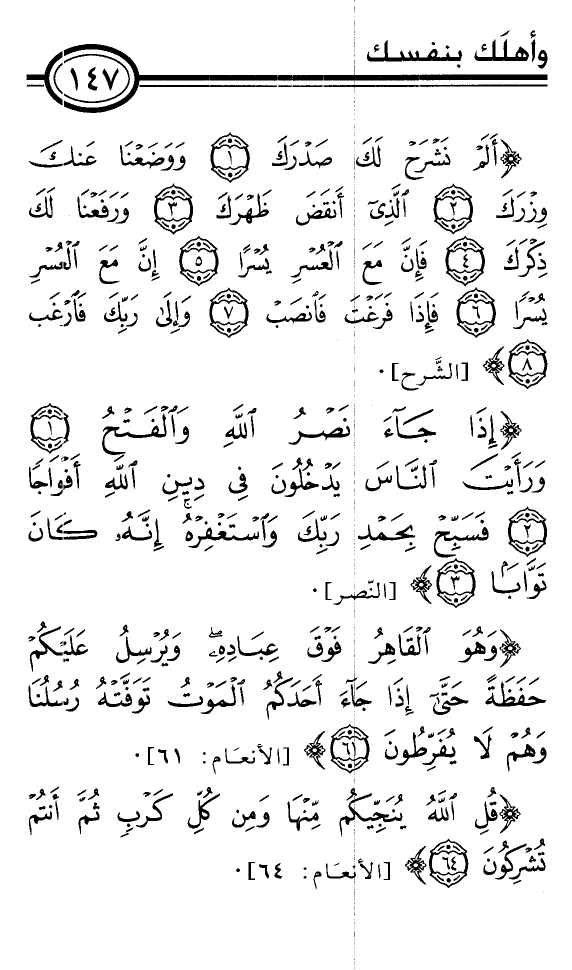 وأهلَك بنفسك
١٤٧
﴿أَلَمْ نَشْرَحْ لَكَ صَدْرَكَ ﴿١﴾ وَوَضَعْنَا عَنكَ
وِزْرَكَ ﴿٢﴾ ٱلَّذِىٓ أَنقَضَ ظَهْرَكَ ﴿٣﴾ وَرَفَعْنَا لَكَ
ذِكْرَكَ ﴿٤﴾ فَإِنَّ مَعَ ٱلْعُسْرِ يُسْرًا ﴿٥﴾ إِنَّ مَعَ ٱلْعُسْرِ
يُسْرًا ﴿٦﴾ فَإِذَا فَرَغْتَ فَٱنصَبْ ﴿٧﴾ وَإِلَىٰ رَبِّكَ فَٱرْغَب
﴿٨﴾﴾ [الشَّرح].
﴿إِذَا جَآءَ نَصْرُ ٱللَّهِ وَٱلْفَتْحُ ﴿١﴾
وَرَأَيْتَ ٱلنَّاسَ يَدْخُلُونَ فِى دِينِ ٱللَّهِ أَفْوَاجًا
﴿٢﴾ فَسَبِّحْ بِحَمْدِ رَبِّكَ وَٱسْتَغْفِرْهُ ۚ إِنَّهُۥ كَانَ
تَوَّابًۢا ﴿٣﴾﴾ [النّصر].
﴿وَهُوَ ٱلْقَاهِرُ فَوْقَ عِبَادِهِۦ ۖ وَيُرْسِلُ عَلَيْكُمْ
حَفَظَةً حَتَّىٰٓ إِذَا جَآءَ أَحَدَكُمُ ٱلْمَوْتُ تَوَفَّتْهُ رُسُلُنَا
وَهُمْ لَا يُفَرِّطُونَ ﴿٦١﴾﴾ [الأنعَام: ٦١].
﴿قُلِ ٱللَّهُ يُنَجِّيكُم مِّنْهَا وَمِن كُلِّ كَرْبٍ ثُمَّ أَنتُمْ
تُشْرِكُونَ ﴿٦٤﴾﴾ [الأنعَام: ٦٤].